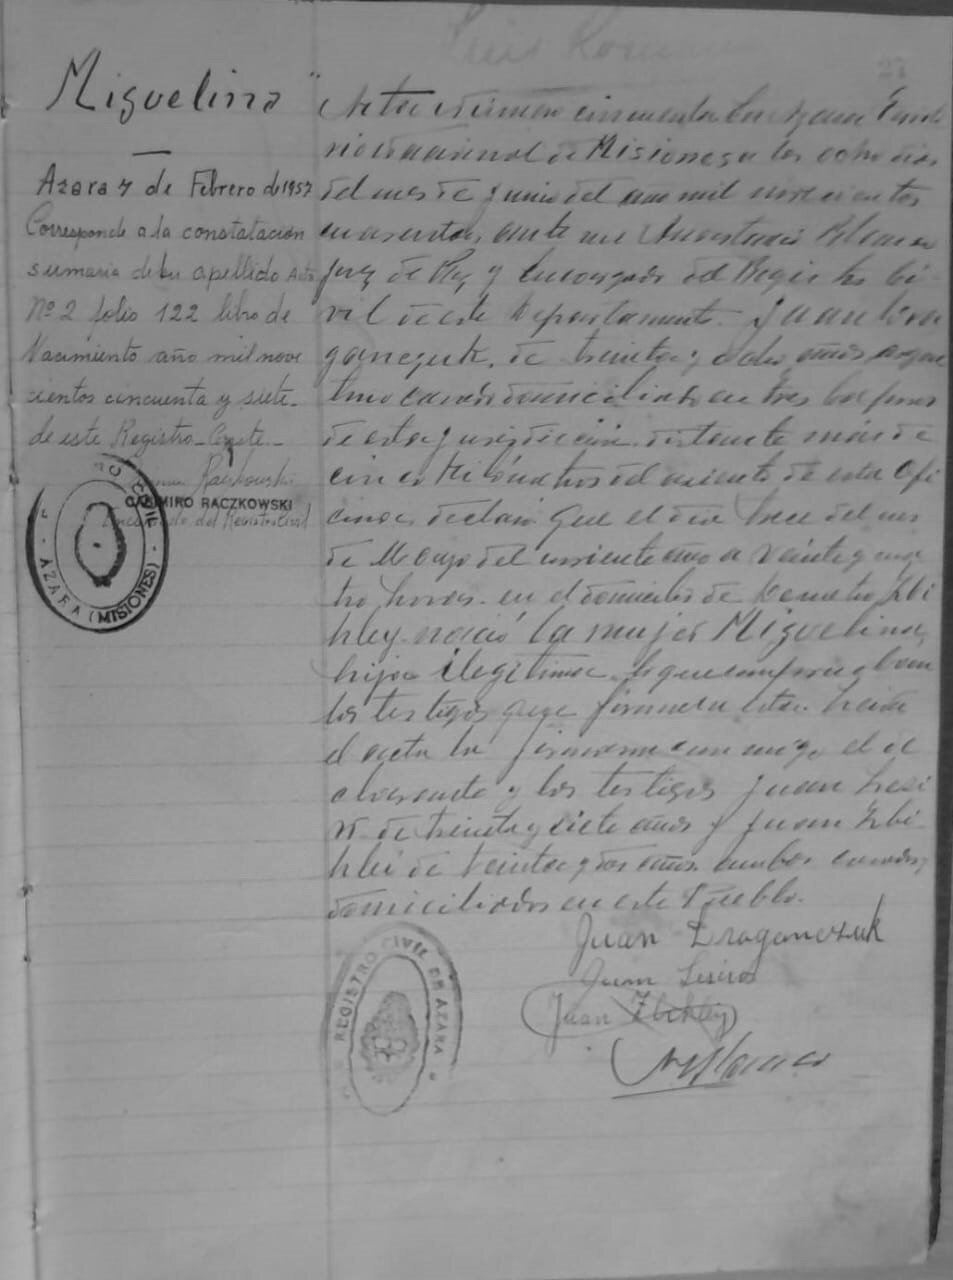 Luis Roman
27
Miguelina
Azara 7 de Febrero de 1957
Corresponde a la constatación
sumaria de su apellido Acta
Nº 2 folio 122 libro de
Nacimiento año mil nove
cientos cincuenta y siete
de este Registro-Conste-
Raczkowski
CASIMIRO RACZKOWSKI
Encargado del Registro Civil
AZARA (MISIONES)
Acta número cincuenta En Azara
nacional de Misiones a los ocho dias
del mes de Junio del año mil novecientos
cuarenta, ante mi Blanco
Juez de Paz y Encargado del Registro Ci-
vil de este Departamento. Juan Dra
ganczuk, de treinta y ocho años, argen
tino casado domiciliado en tres
de esta jurisdicción distante más de
cinco kilómetros del asiento de esta Ofi
cina, declaró: Que el dia trece del mes
de Mayo del corriente año a veinte y cua
tro horas en el domicilio de Demetrio Zbi
hley nació la mujer Miguelina,
hija ilegítima, lo que comprueban
los testigos que firman esta. Leida
el acta la firmaron conmigo el de
clarante y los testigos Juan
de treinta y siete años y Juan Zbi
hlei de veinte y dos años, ambos casados,
domiciliados en este Pueblo.
Juan Draganczuk
Juan
Juan Zbihley
Blanco
REGISTRO CIVIL DE AZARA